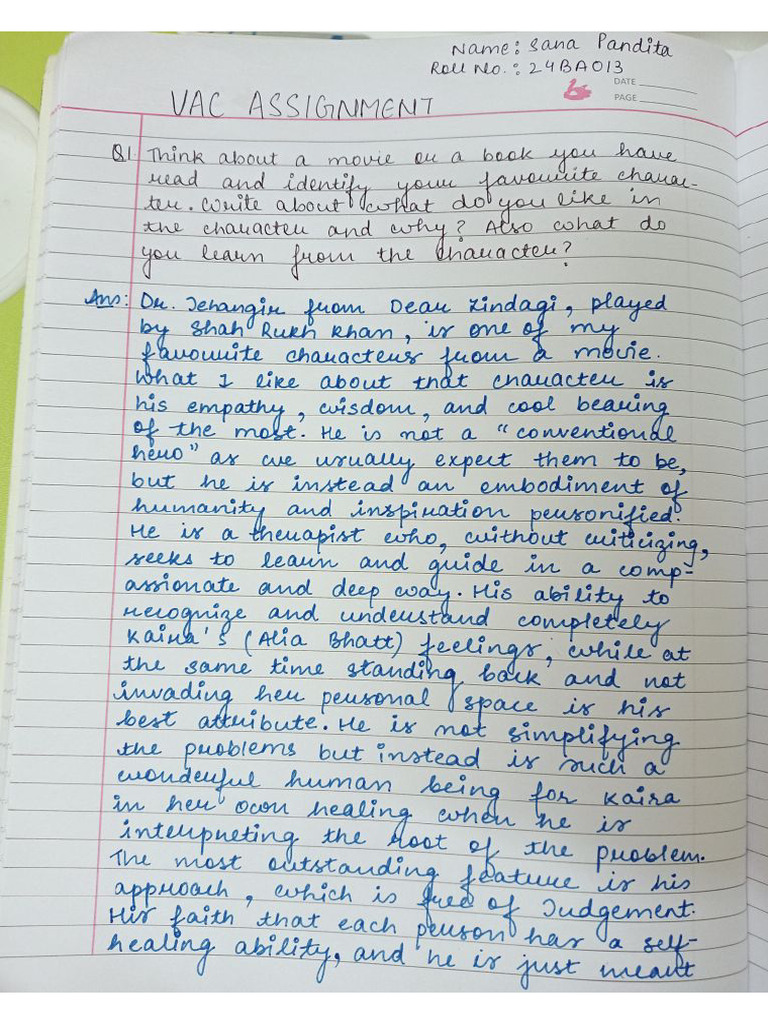 Name: Sana Pandita
Roll No.: 24BA013
DATE
PAGE
VAC ASSIGNMENT
Q1. Think about a movie or a book you have
read and identify your favourite charac-
ter. Write about what do you like in
the character and why? Also what do
you learn from the character?
Ans: Dr. Jehangir from Dear Zindagi, played
by Shah Rukh Khan, is one of my
favourite characters from a movie.
What I like about that character is
his empathy, wisdom, and cool bearing
of the most. He is not a "conventional
hero" as we usually expect them to be,
but he is instead an embodiment of
humanity and inspiration personified.
He is a therapist who, without criticizing,
seeks to learn and guide in a comp-
assionate and deep way. His ability to
recognize and understand completely
Kaira's (Alia Bhatt) feelings, while at
the same time standing back and not
invading her personal space is his
best attribute. He is not simplifying
the problems but instead is such a
wonderful human being for Kaira
in her own healing when he is
interpreting the root of the problem.
The most outstanding feature is his
approach, which is free of Judgement.
His faith that each person has a self-
healing ability, and he is just meant